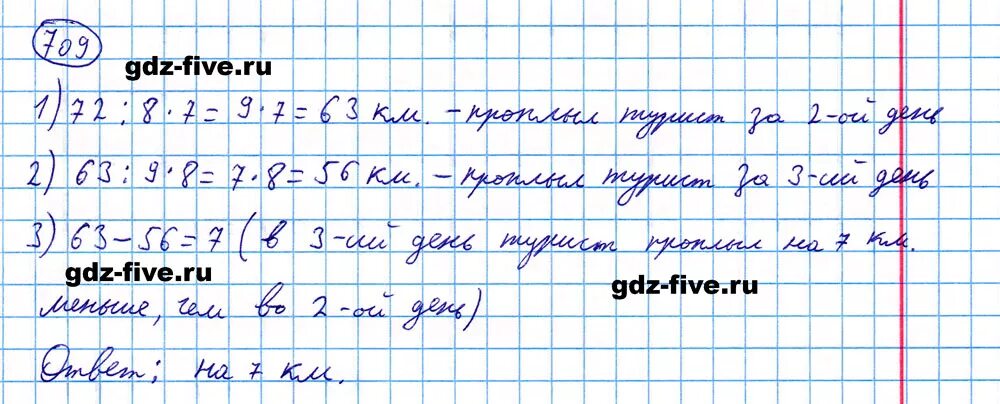 709
gdz-five.ru
1) 72 : 8 · 7 = 9 · 7 = 63 км. – проплыл турист за 2-ой день
2) 63 : 9 · 8 = 7 · 8 = 56 км. – проплыл турист за 3-ий день
3) 63 – 56 = 7 ( в 3-ий день турист проплыл на 7 км.
gdz-five.ru
gdz-five.ru
меньше, чем во 2-ой день)
Ответ: на 7 км.